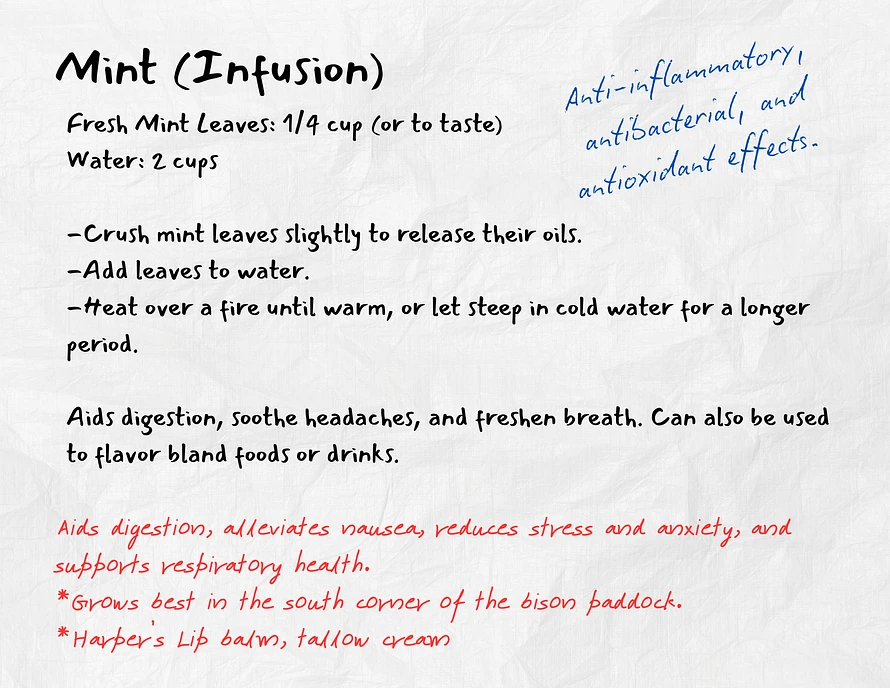 Mint (Infusion)
Anti-inflammatory,
antibacterial, and
antioxidant effects.
Fresh Mint Leaves: 1/4 cup (or to taste)
Water: 2 cups
-Crush mint leaves slightly to release their oils.
-Add leaves to water.
-Heat over a fire until warm, or let steep in cold water for a longer
period.
Aids digestion, soothe headaches, and freshen breath. Can also be used
to flavor bland foods or drinks.
Aids digestion, alleviates nausea, reduces stress and anxiety, and
supports respiratory health.
*Grows best in the south corner of the bison paddock.
*Harper's Lip balm, tallow cream